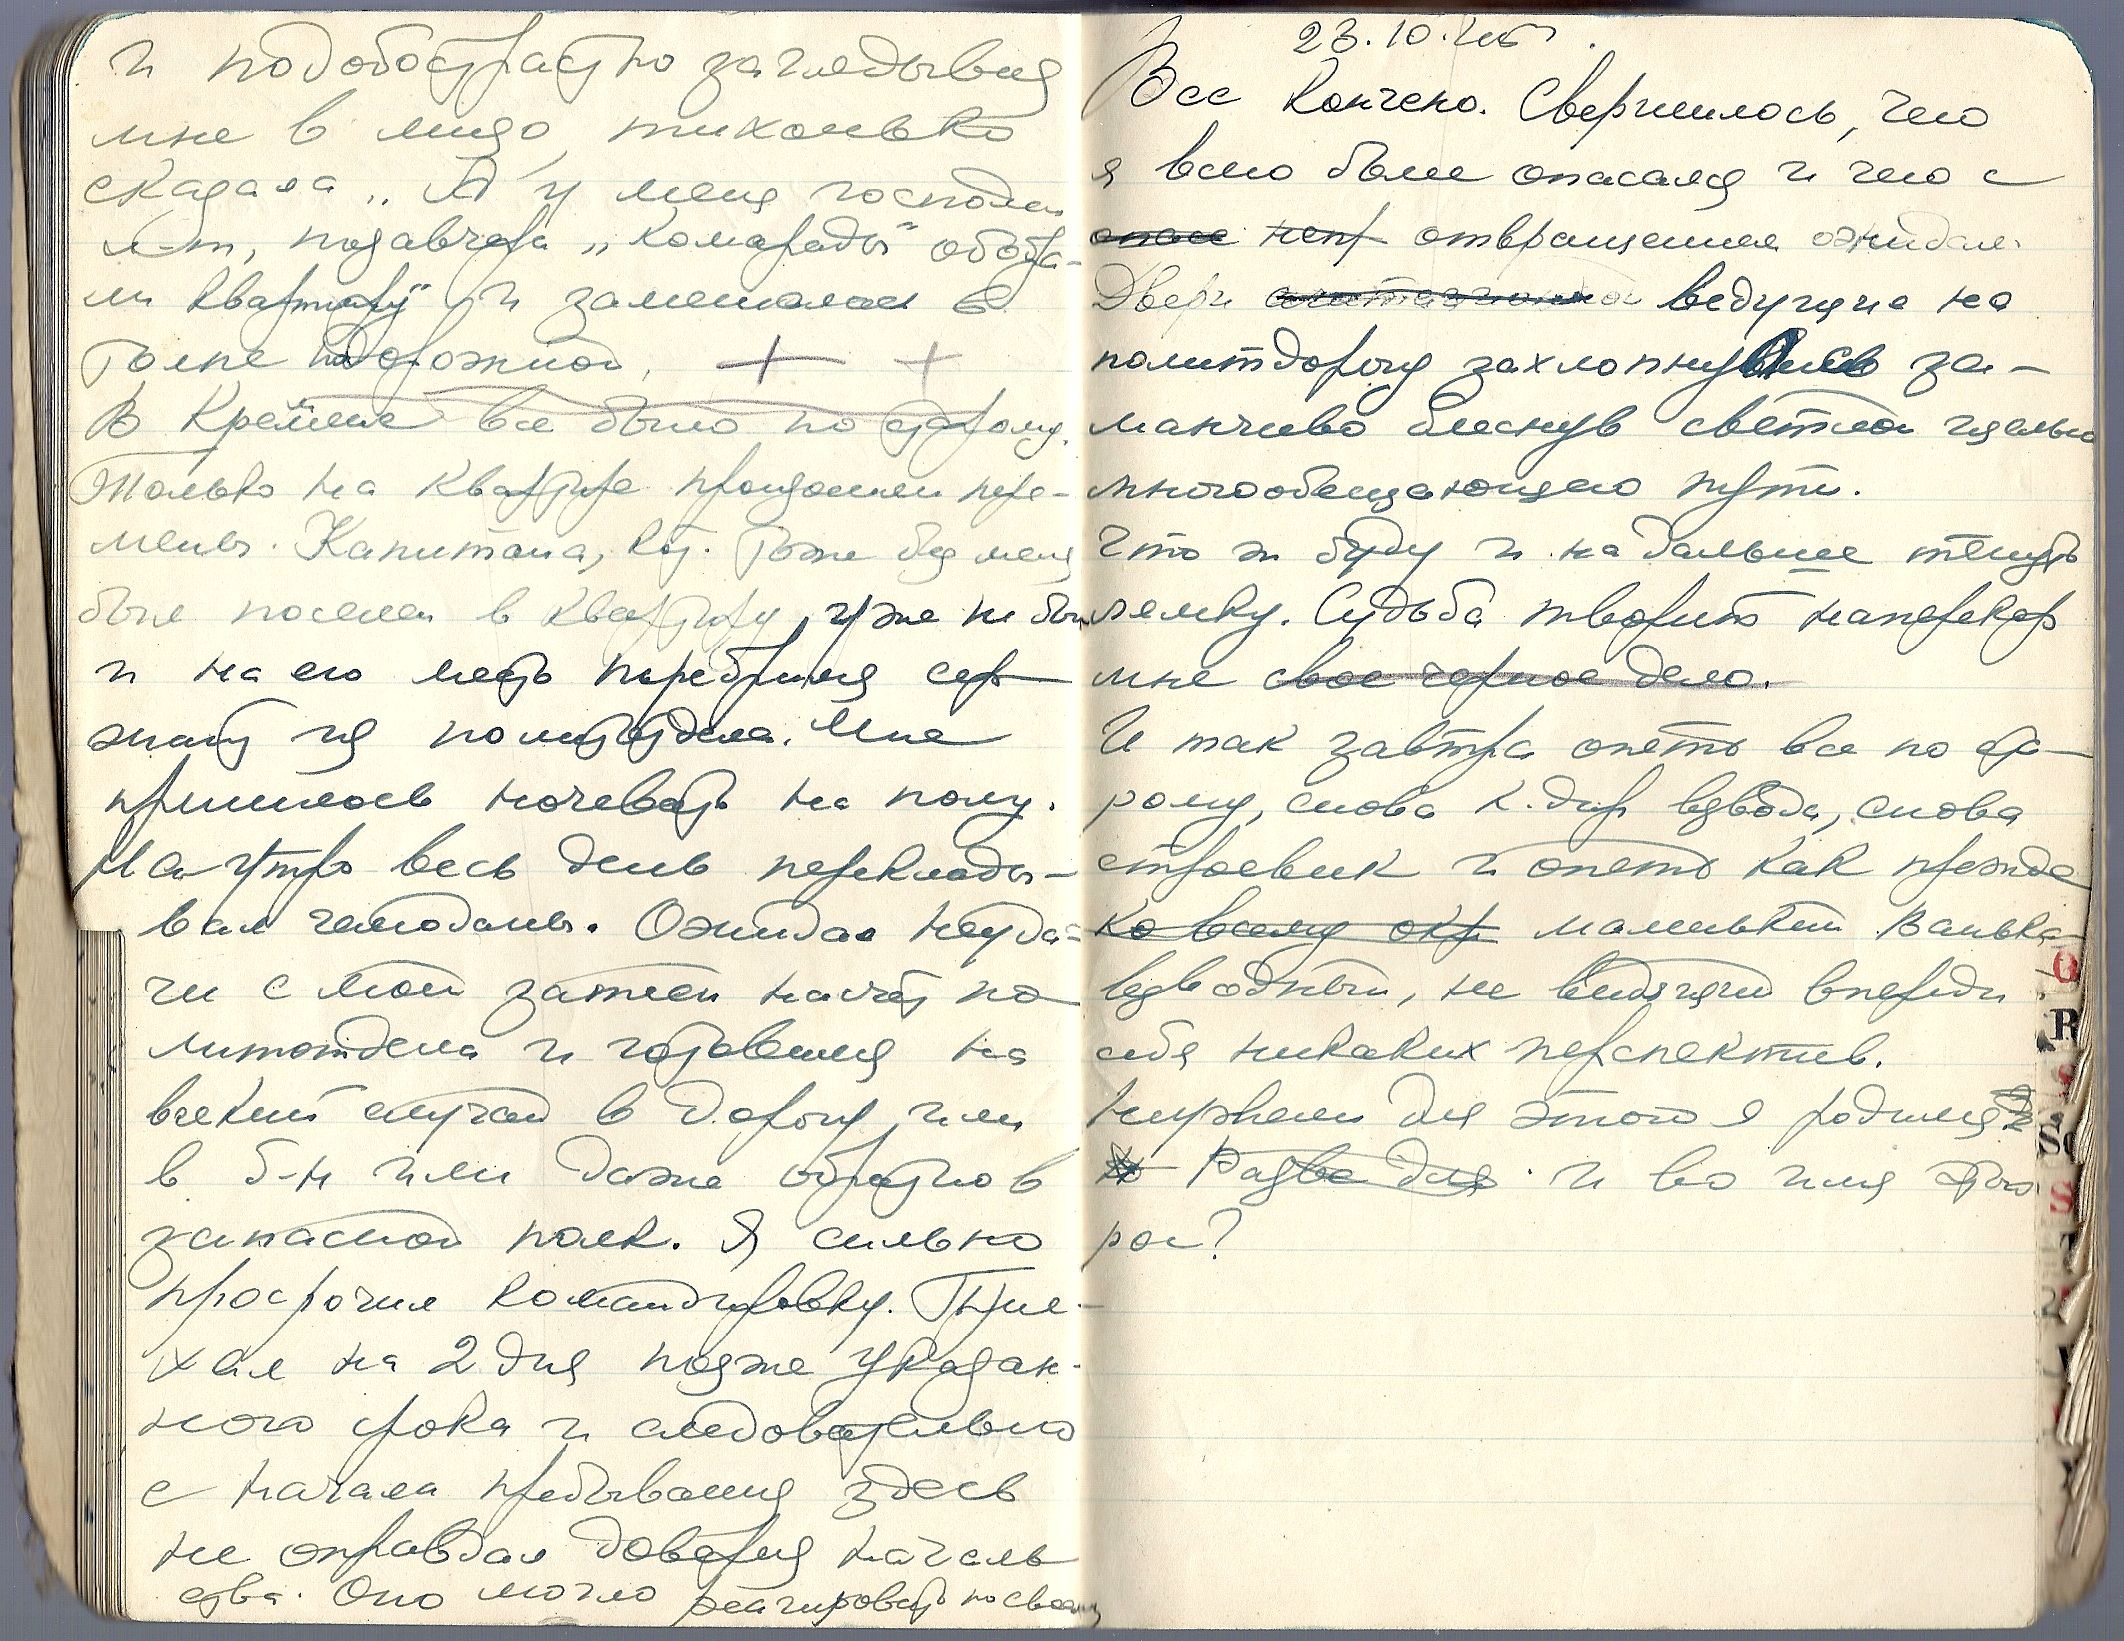 и подобострастно заглядывая
мне в лицо, тихонько
сказала „А у меня господин
л-т, позавчера „комарады" обобра-
ли квартиру" и замешалась в
толпе подорожной. + +
В Кремене все было по старому.
Только на квартире произошли пере-
мены. Капитана, кот. тоже без меня
был поселен в квартиру, уже не было
и на его место перебрался сер-
жант из политотдела. Мне
пришлось ночевать на полу.
На утро весь день перекладывал
вал чемоданы. Ожидал неуда-
чи с моей затеей насчет по
литотдела и готовился на
всякий случай в дорогу, или
в б-н или даже обратно в
запасной полк. Я сильно
просрочил командировку. Прие-
хал на 2 дня позже указан-
ного срока и следовательно
с начала пребывания здесь
не оправдал доверия началь
ства. Оно могло реагировать по своему
23.10.
Все кончено. Свершилось, чего
я всего более опасался и чего с
опасе неп отвращением ожидал.
Двери ведущие на
политдорогу захлопнулись за-
манчиво блеснув светлой целью
многообещающего пути.
Что ж буду и на дальше тянуть
лямку. Судьба творит наперекор
мне свое черное дело.
И так завтра опять все по ста-
рому, снова к-дир взвода, снова
строевик и опять как прежде
ко всему окр маленький Ванька-
взводный, не видящий впереди
себя никаких перспектив.
Неужели для этого я родился
Разве для и во имя этого
рос?